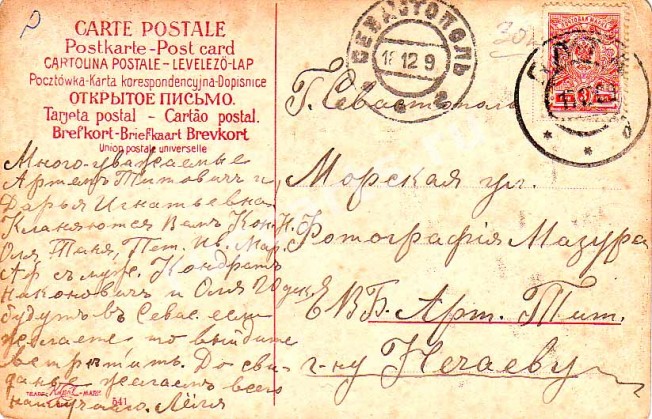 CARTE POSTALE
Postkarte-Post card
CARTOLINA POSTALE-LEVELEZŐ-LAP
Pocztówka-Karta korespondencyjna-Dopisnice
ОТКРЫТОЕ ПИСЬМО.
Tarjeta postal - Cartão postal.
Brefkort-Briefkaart Brevkort
Union postale universelle
Много-уважаемые
Артемъ Титовичъ и
Дарья Игнатьевна
Кланяются Вамъ Кон. Н.
Оля, Таня, Пет. Ив. Мар.
Ар съ муж. Кондратъ
Никоновичъ и Оля
будутъ въ Севас. если
желаете то выйдите
встретить. До сви-
данье желаемъ всего
наилучшаго. Лёля
СЕВАСТОПОЛЬ
12 9
Г. Севастополь
Морская ул.
Фотографія Мазура
ЕВБ. Арт. Тит.
г-ну Нечаеву
TRADE MARK
541